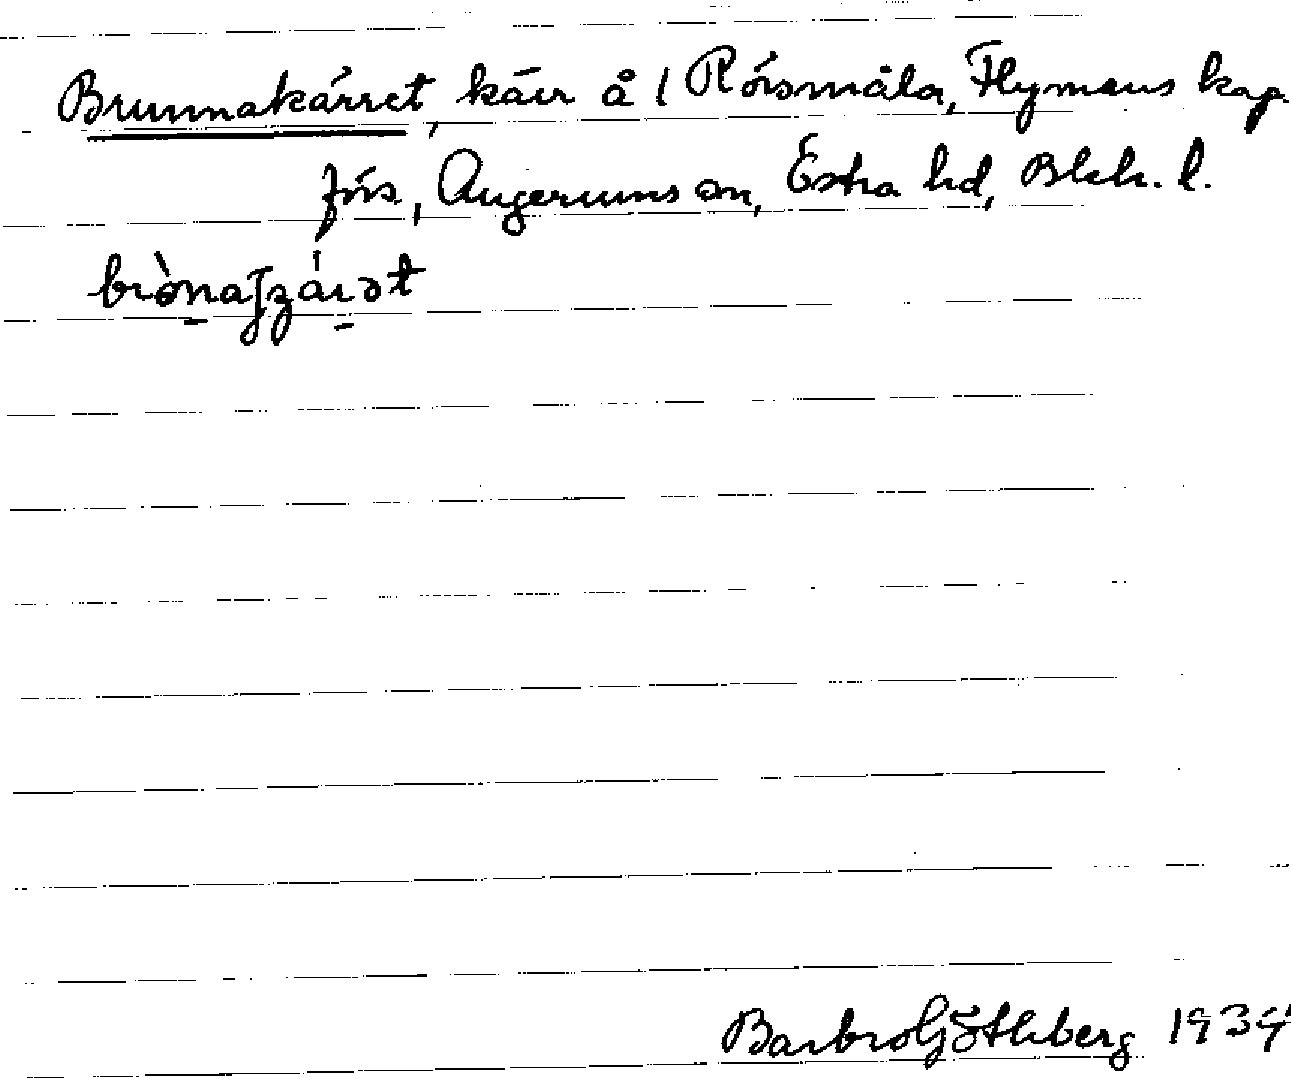 Brunnakärret, kärr å 1 Rörsmåla, Flymens kap.
förs, Augerums sn, Östra hd, Blek. l.
Barbro Göthberg 1934